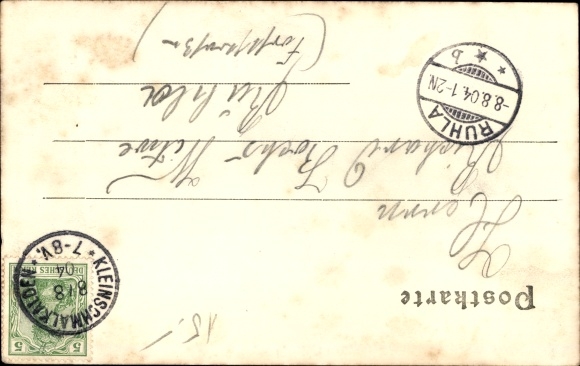 Postkarte
Herrn
Richard
Ruhla
RUHLA
-8.8.04.1-2N.
* b *
KLEINSCHMALKALDEN
8/8
04
* 7-8V. *
DEUTSCHES REICH
5 5
15.-